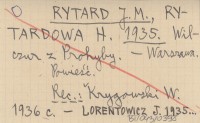 O RYTARD J. M., RY-
TARDOWA H. 1935. Wil-
czur z Prohyby. – Warszawa.
Powieść.
Rec.: Krzyżowski W.
1936 c. – LORENTOWICZ J. 1935...